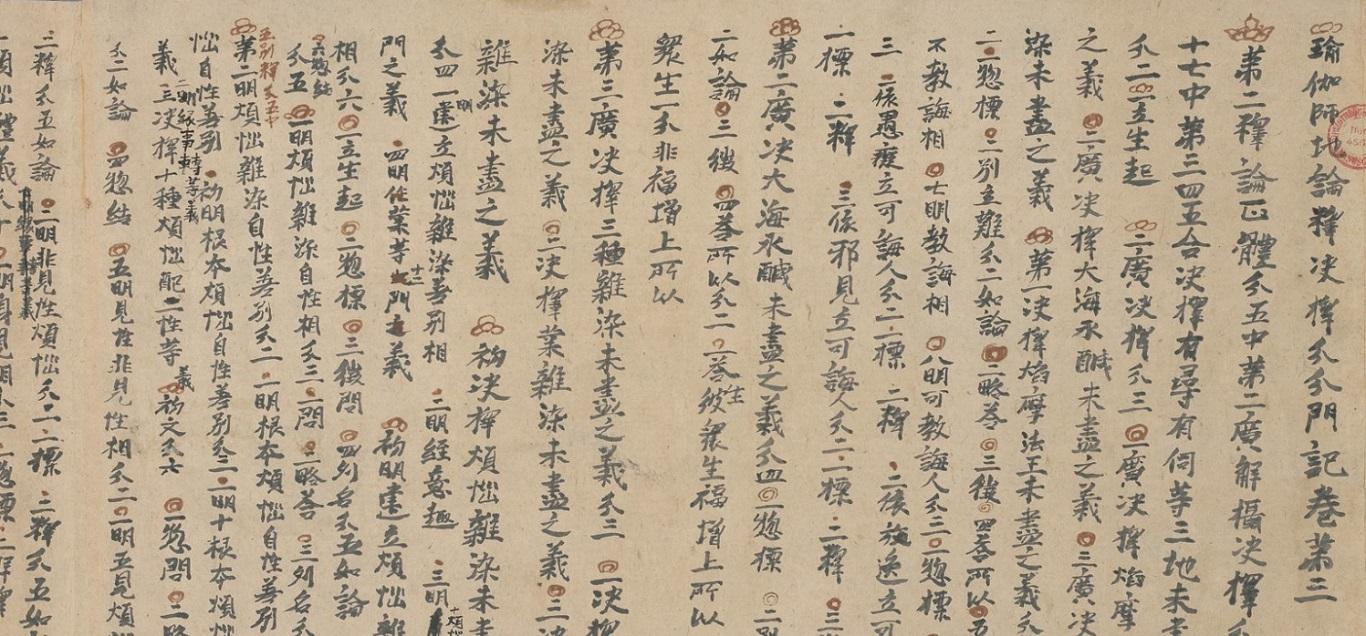 瑜伽師地論釋決擇分分門記卷第三
第二釋論正體分五中第二廣解攝決擇分
十七中第三四五合決擇有尋有伺等三地未
分二 一立生起 二廣決擇分三 一廣決擇焰摩
之義 二廣決擇大海水鹹未盡之義 三廣決
染未盡之義 第一決擇焰摩法王未盡之義分
二 一惣標 二別立難分二如論 二略荅 三徴 四荅所以 五
不教誨相 七明教誨相 八明可教誨人分三 一惣標
三 一依愚癡立可誨人分二 一標 二釋 二依放逸立可
一標 二釋 三依邪見立可誨人分二 一標 二釋 三
第二廣決大海水鹹未盡之義分四 一惣標 二
二如論 三徴 四荅所以分二 一荅彼衆生福增上所以
衆生一分非福增上所以
第三廣決擇三種雜染未盡之義分三 一決擇
染未盡之義 二決擇業雜染未盡之義 三決
雜染未盡之義 初決擇煩惱雜染未
分四 一明建立煩惱雜染差別相 二明經意趣 三明
門之義 四明作業等十二門之義 初明建立煩惱雜
相分六 一立生起 二惣標 三徴問 四列名分五如論
六惣結
分五 一明煩惱雜染自性相分三 一問 二略荅 三列名分
五別釋分五中
第二明煩惱雜染自性差別分二 一明根本煩惱自性差別
惱自性差別 初明根本煩惱自性差別分三 一明十根本煩惱
二明緣事轉等義
義 三決擇十種煩惱配二性等義 初文分六 一惣問 二略
分二如論 四惣結 五明見性非見性相分二 一明五見煩
二釋分五如論 二明非見性煩惱分二 一標 二釋分五如